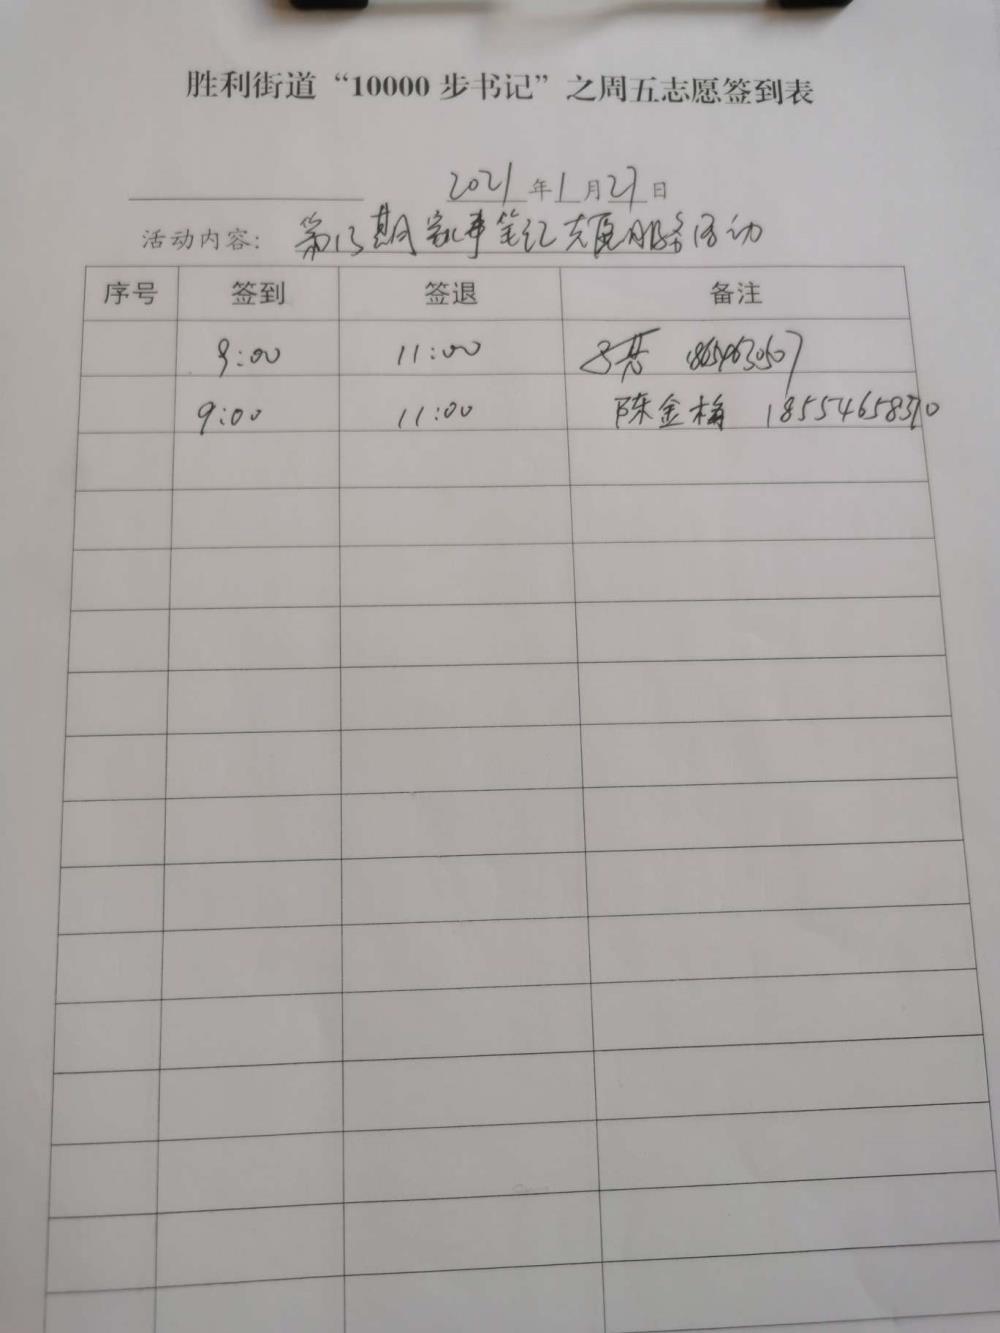 胜利街道“10000 步书记”之周五志愿签到表
2021 年 1 月 27 日
活动内容: 第13期家事笔记志愿服务活动
序号 签到 签退 备注
9:00 11:00
9:00 11:00 陈金梅 18554658390